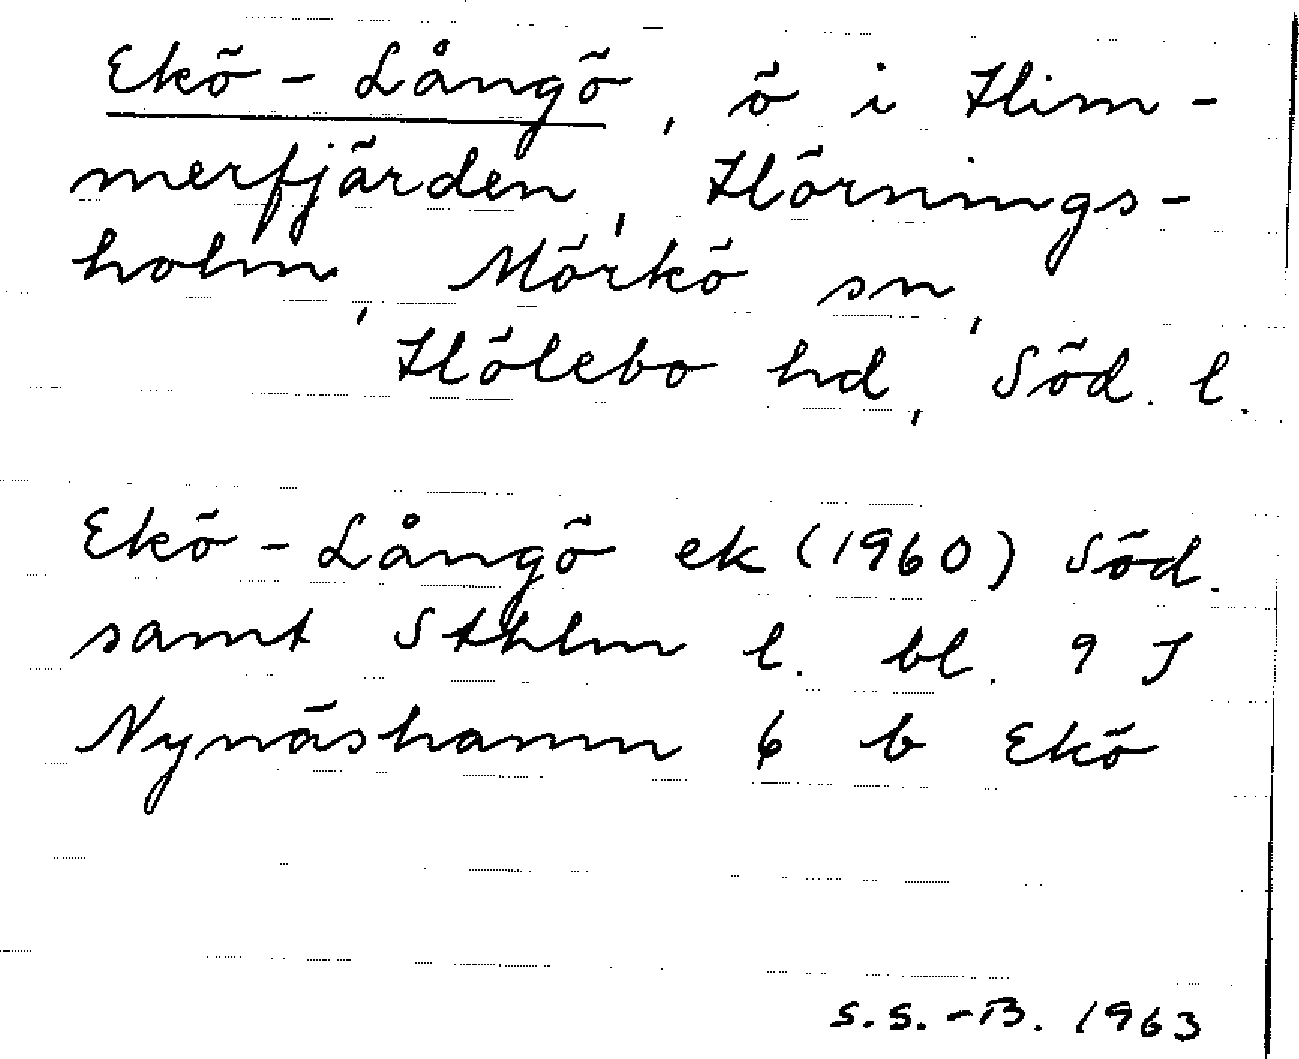 Ekö-Långö, ö i Him-
merfjärden, Hörnings-
holm, Mörkö sn,
Hölebo hd, Söd. l.
Ekö-Långö ek (1960) Söd.
samt Sthlm l. bl. 9 I
Nynäshamn 6 b Ekö
S.S.-B. 1963